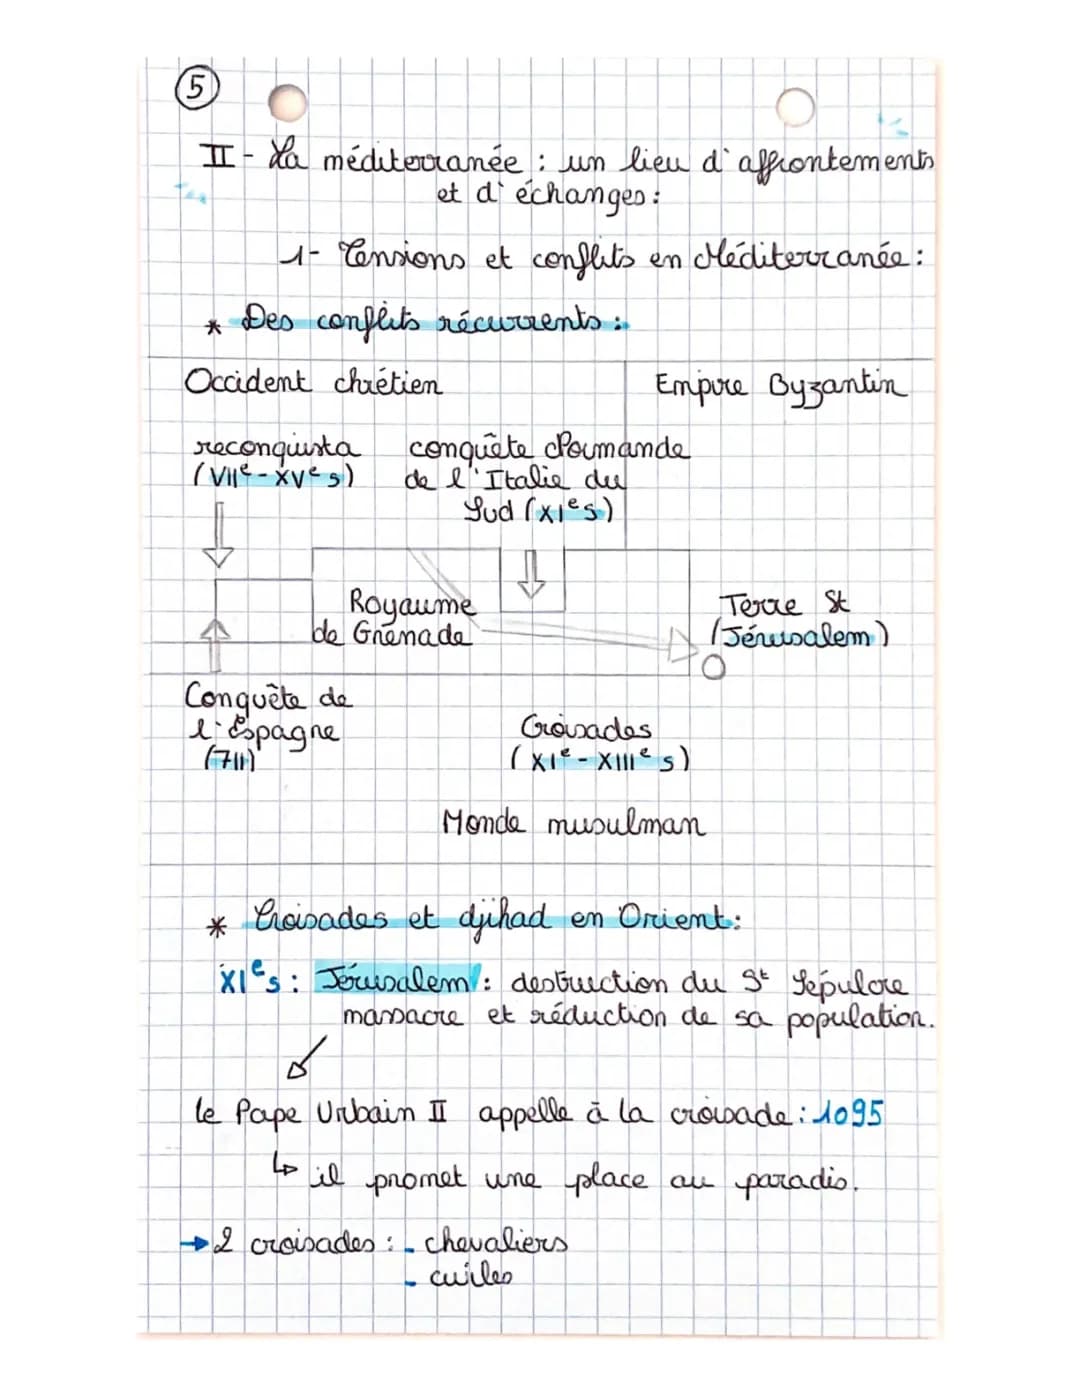 5
II - La méditerranée : un lieu d'affrontements
et d'échanges :
1- Tensions et conflits en Méditerranée :
* Des conflits récurrents :
Occident chrétien
Empire Byzantin
reconquista
(VIIe - XVe s)
conquête Normande
de l'Italie du
Sud (XIe s)
Royaume
de Grenade
Terre St
(Jérusalem)
Conquête de
l'Espagne
(711)
Croisades
(XIe - XIIIe s)
Monde musulman
* Croisades et djihad en Orient :
XIe s : Jérusalem : destruction du St Sépulcre
massacre et réduction de sa population.
le Pape Urbain II appelle à la croisade : 1095
↳ il promet une place au paradis.
→ 2 croisades : - chevaliers
- civiles